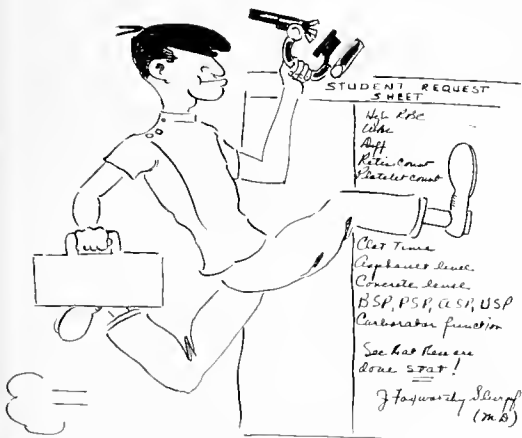 STUDENT REQUEST
SHEET
Hgb RBC
WBC
Diff
Retic Count
Platelet Count
Clot Time
Asphault level
Concrete level
BSP, PSP, ASP, USP
Carborator function
See that these are
done stat!
J Foxworthy
(M.D)